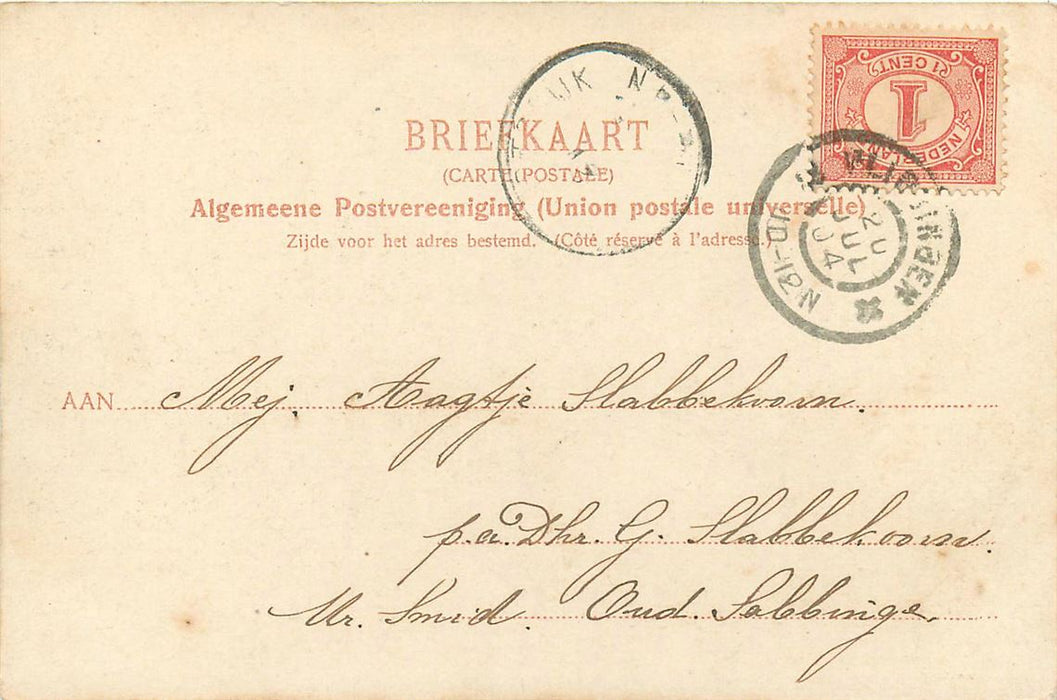 1 CENT
1
NEDERLAND
VLISSINGEN
20
JUL
04
BRIEFKAART
(CARTE POSTALE)
Algemeene Postvereeniging (Union postale universelle)
Zijde voor het adres bestemd. (Côté réservé à l'adresse.)
AAN Mej. Aagtje Slabbekoorn.
p.a. Dhr. G. Slabbekoorn.
Mr. Smid. Oud. Sabbinge.